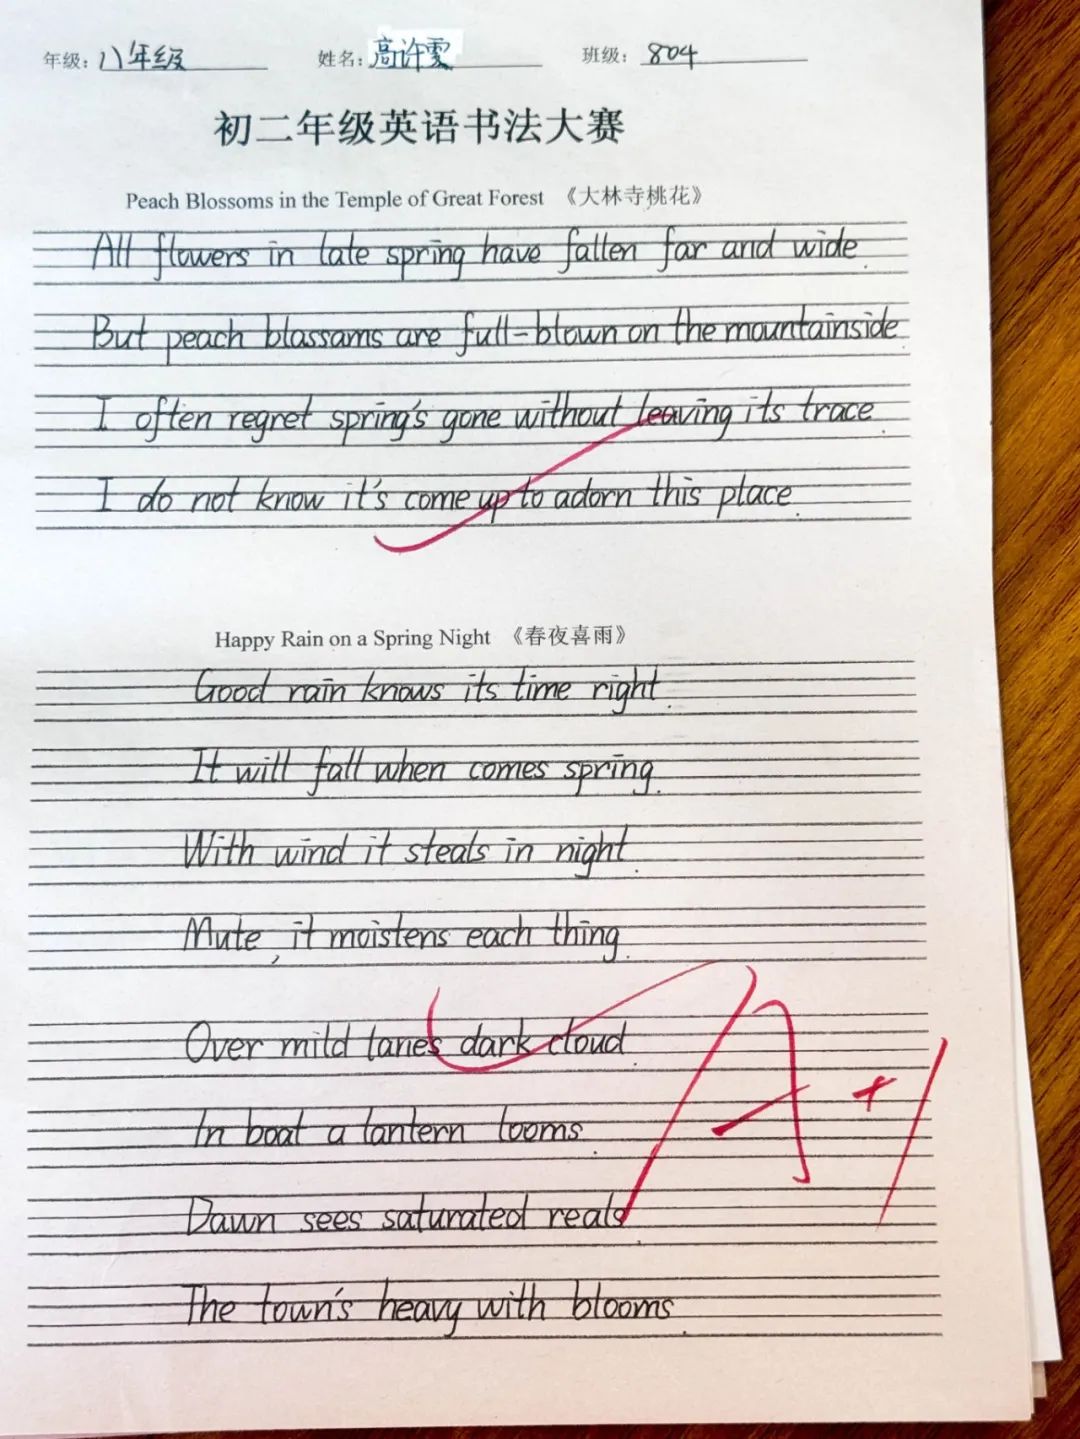 年级: 八年级 姓名: 高许雯 班级: 804
初二年级英语书法大赛
Peach Blossoms in the Temple of Great Forest 《大林寺桃花》
All flowers in late spring have fallen far and wide.
But peach blassams are full-blown on the mountainside.
I often regret spring's gone without leaving its trace.
I do not know it's come up to adorn this place.
Happy Rain on a Spring Night 《春夜喜雨》
Good rain knows its time right.
It will fall when comes spring.
With wind it steals in night.
Mute, it moistens each thing.
Over mild lanes dark cloud.
In boat a lantern looms.
Dawn sees saturated reals
The town's heavy with blooms.
A+